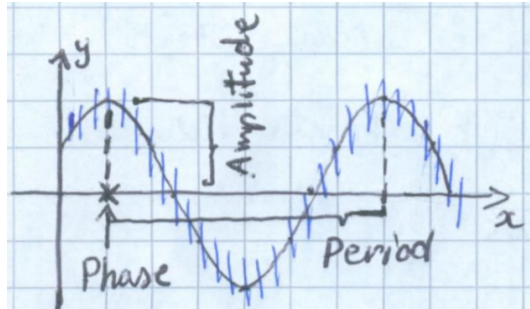 y
Amplitude
x
Phase
Period